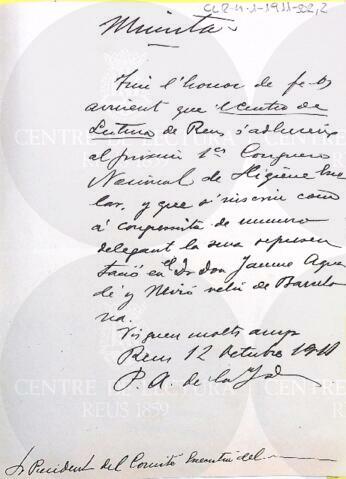 CL2-4-1-1911-S2,2
Minuta
Tinc l'honor de fe-os
avinent que el Centro de
Lectura de Reus s'adhereix
al proxim 1er Congreso
Nacional de Higiene Esco
lar, y que s'inscriu com
á congresista de numero
delegant la seva represen
tació en el Dr don Jaume Agua
dé y Miró vehí de Barcelo
na.
Visquen molts anys
Reus 12 Octubre 1911
P. A. de la
Sr President del Comité Executiu del
CENTRE DE LECTURA
REUS 1859